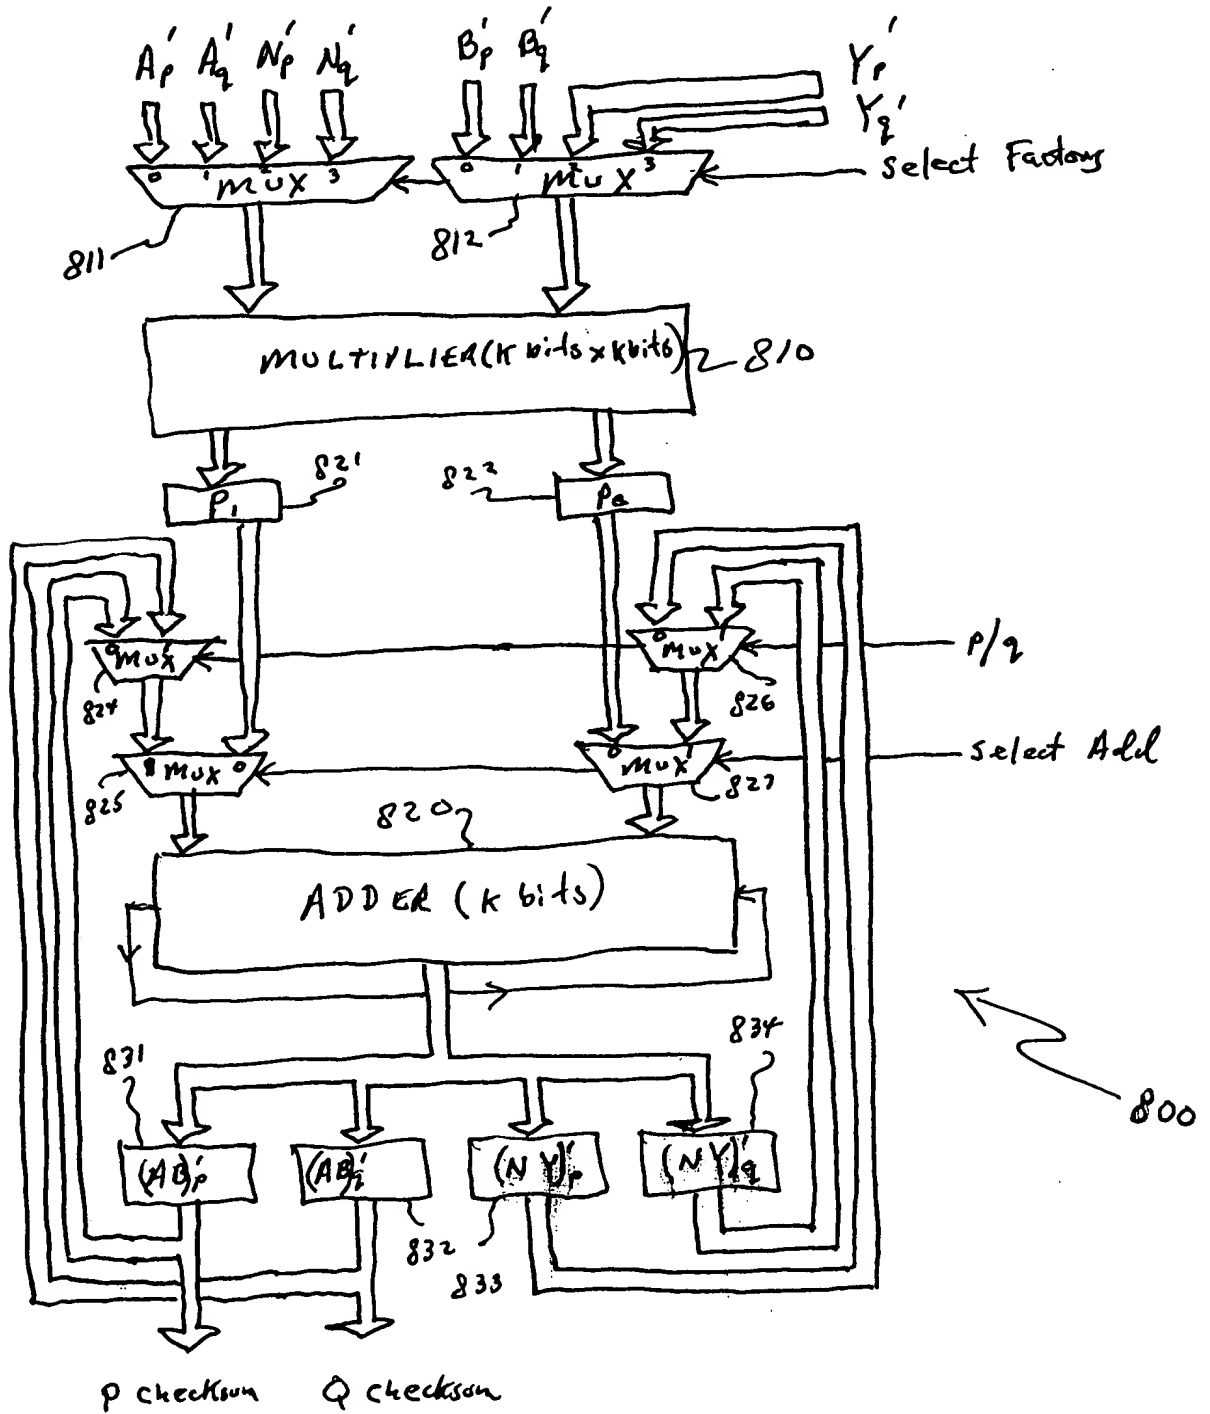 A'p A'q N'p N'q B'p B'q Y'p
Y'q
Select Factors
0 1 2 3 MUX
0 1 2 3 MUX
811
812
MULTIPLIER (k bits x k bits)
810
821
822
P1
P2
0 1 MUX
0 1 MUX
P/q
824
826
1 MUX 0
0 MUX 1
Select Add
825
827
820
ADDER (k bits)
831
834
800
(AB)'p
(AB)'q
(NY)'p
(NY)'q
832
833
P checksum
Q checksum